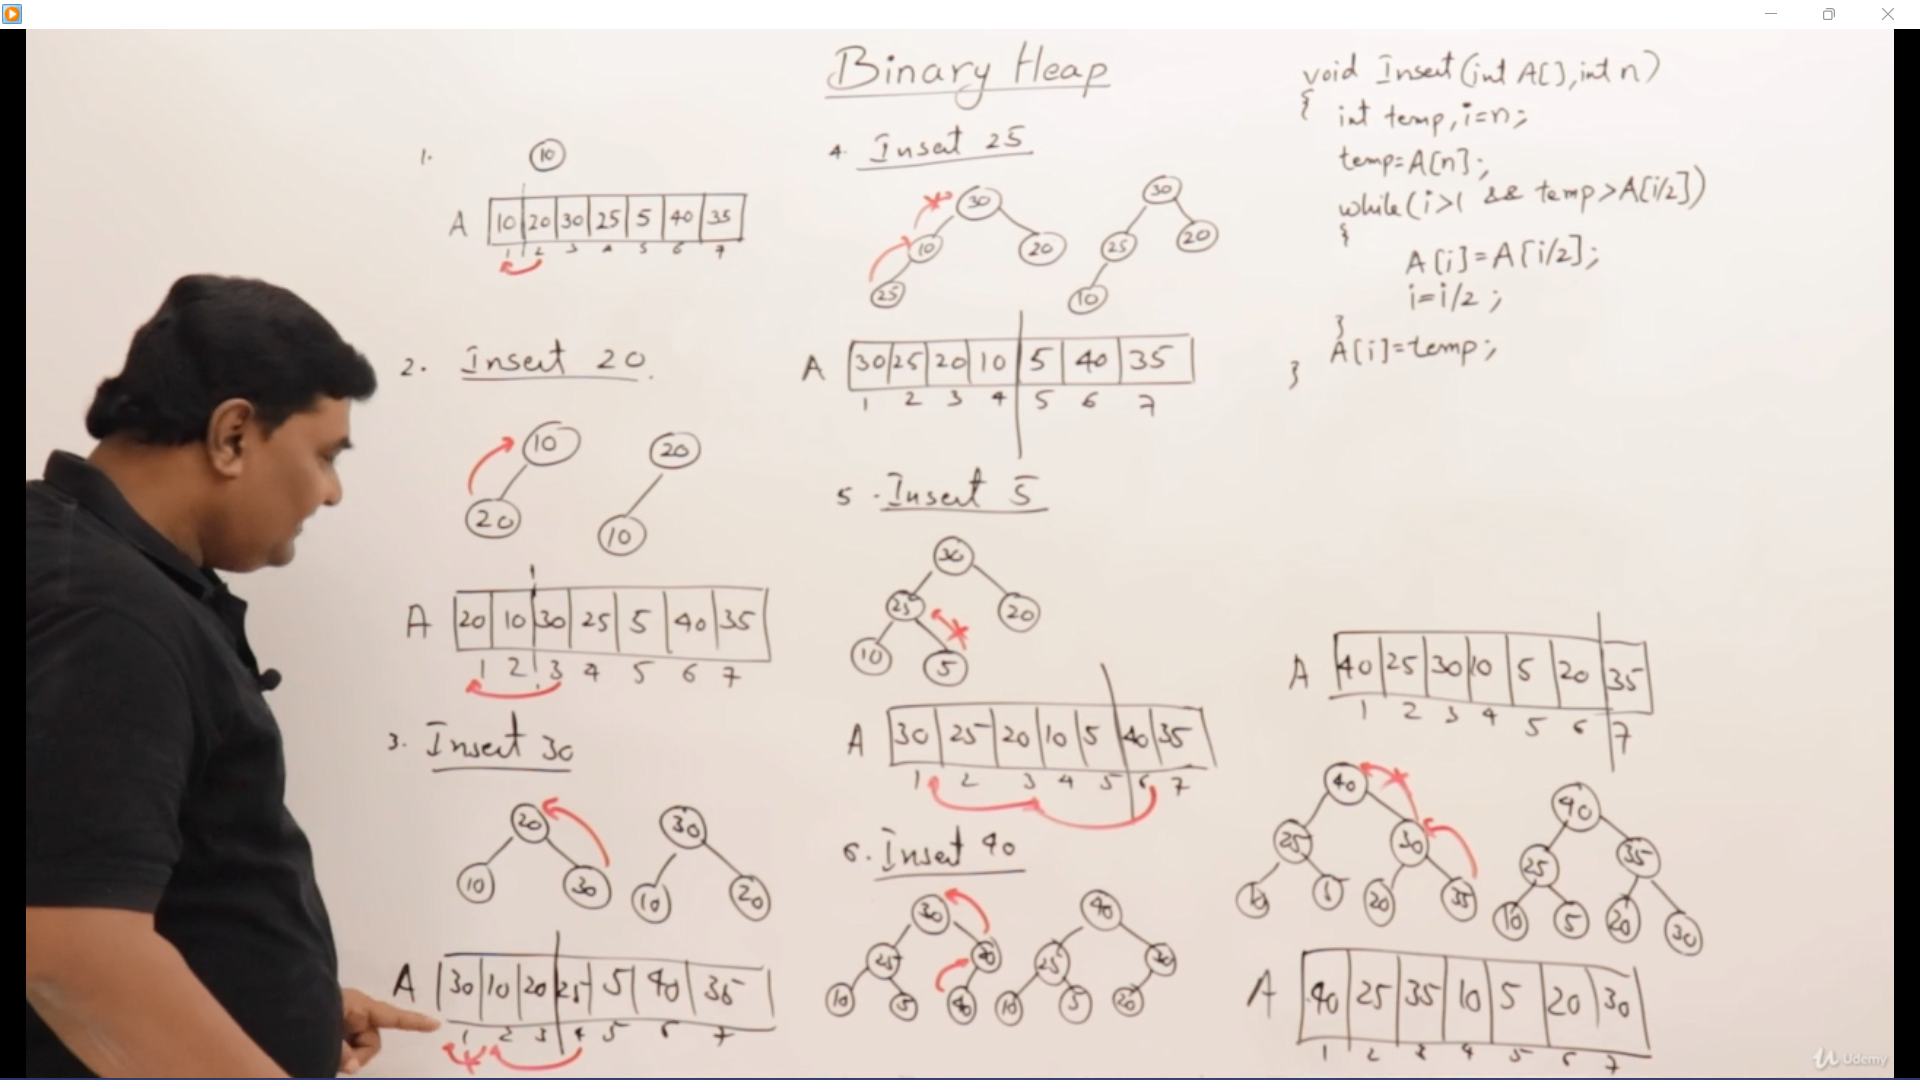 Binary Heap
1.
10
A 10 20 30 25 5 40 35
1 2 3 4 5 6 7
2. Insert 20.
10
20
20
10
A 20 10 30 25 5 40 35
1 2 3 4 5 6 7
3. Insert 30
20
10 30
30
10 20
A 30 10 20 25 5 40 35
1 2 3 4 5 6 7
4. Insert 25
30
10 20
25
30
25 20
10
A 30 25 20 10 5 40 35
1 2 3 4 5 6 7
5. Insert 5
30
25 20
10 5
A 30 25 20 10 5 40 35
1 2 3 4 5 6 7
6. Insert 40
30
25 20
10 5 40
40
25 30
10 5 20
void Insert(int A[],int n)
{
int temp,i=n;
temp=A[n];
while(i>1 && temp>A[i/2])
{
A[i]=A[i/2];
i=i/2;
}
A[i]=temp;
}
A 40 25 30 10 5 20 35
1 2 3 4 5 6 7
40
25 30
10 5 20 35
40
25 35
10 5 20 30
A 40 25 35 10 5 20 30
1 2 3 4 5 6 7
Udemy